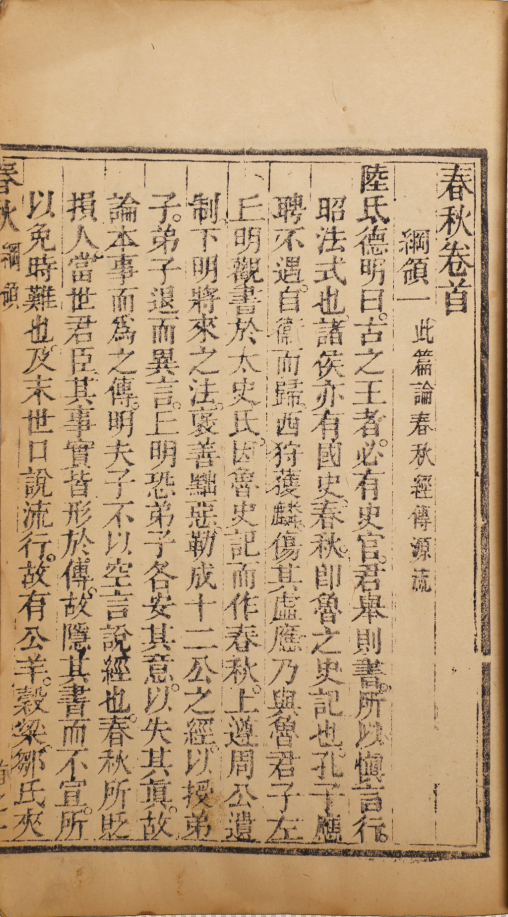 春秋卷首
綱領一 此篇論春秋經傳源流
陸氏德明曰。古之王者。必有史官。君舉則書。所以愼言行。
昭法式也諸侯亦有國史。春秋。卽魯之史記也。孔子應
聘不遇。自衛而歸。西狩獲麟。傷其虛應。乃與魯君子左
丘明觀書於太史氏。因魯史記而作春秋。上遵周公遺
制。下明將來之法。褒善黜惡。勒成十二公之經。以授弟
子。弟子退而異言。丘明恐弟子各安其意。以失其眞。故
論本事而爲之傳。明夫子不以空言說經也。春秋所貶
損人。當世君臣。其事實皆形於傳。故隱其書而不宣。所
以免時難也。及末世口說流行。故有公羊。穀梁。鄒氏。夾
春秋 綱領